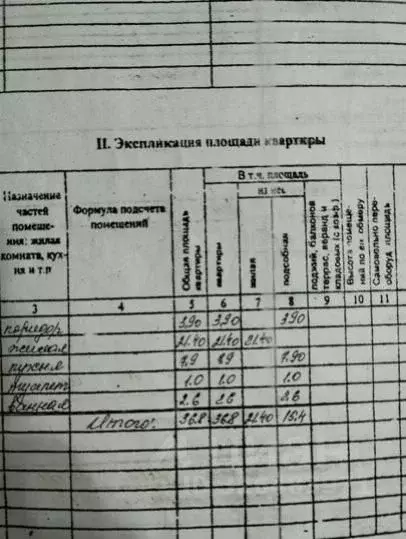 II. Экспликация площади квартиры
Назначение частей помеще- ния: жилая комната, кух- ня и т.п
Формула подсчета помещений
Общая площадь квартиры
В т.ч. площадь
квартиры
из нее
жилая
подсобная
лоджий, балконов террас, веранд и кладовых (с коэф.)
Высота помеще- ний по их обмеру
Самовольно пере- оборуд площадь
3 4 5 6 7 8 9 10 11
коридор 3.90 3.90 3.90
жилая 21.40 21.40 21.40
кухня 7.9 7.90
туалет 1.0 1.0 1.0
ванная 2.6 2.6 2.6
Итого: 36.8 36.8 21.40 15.4